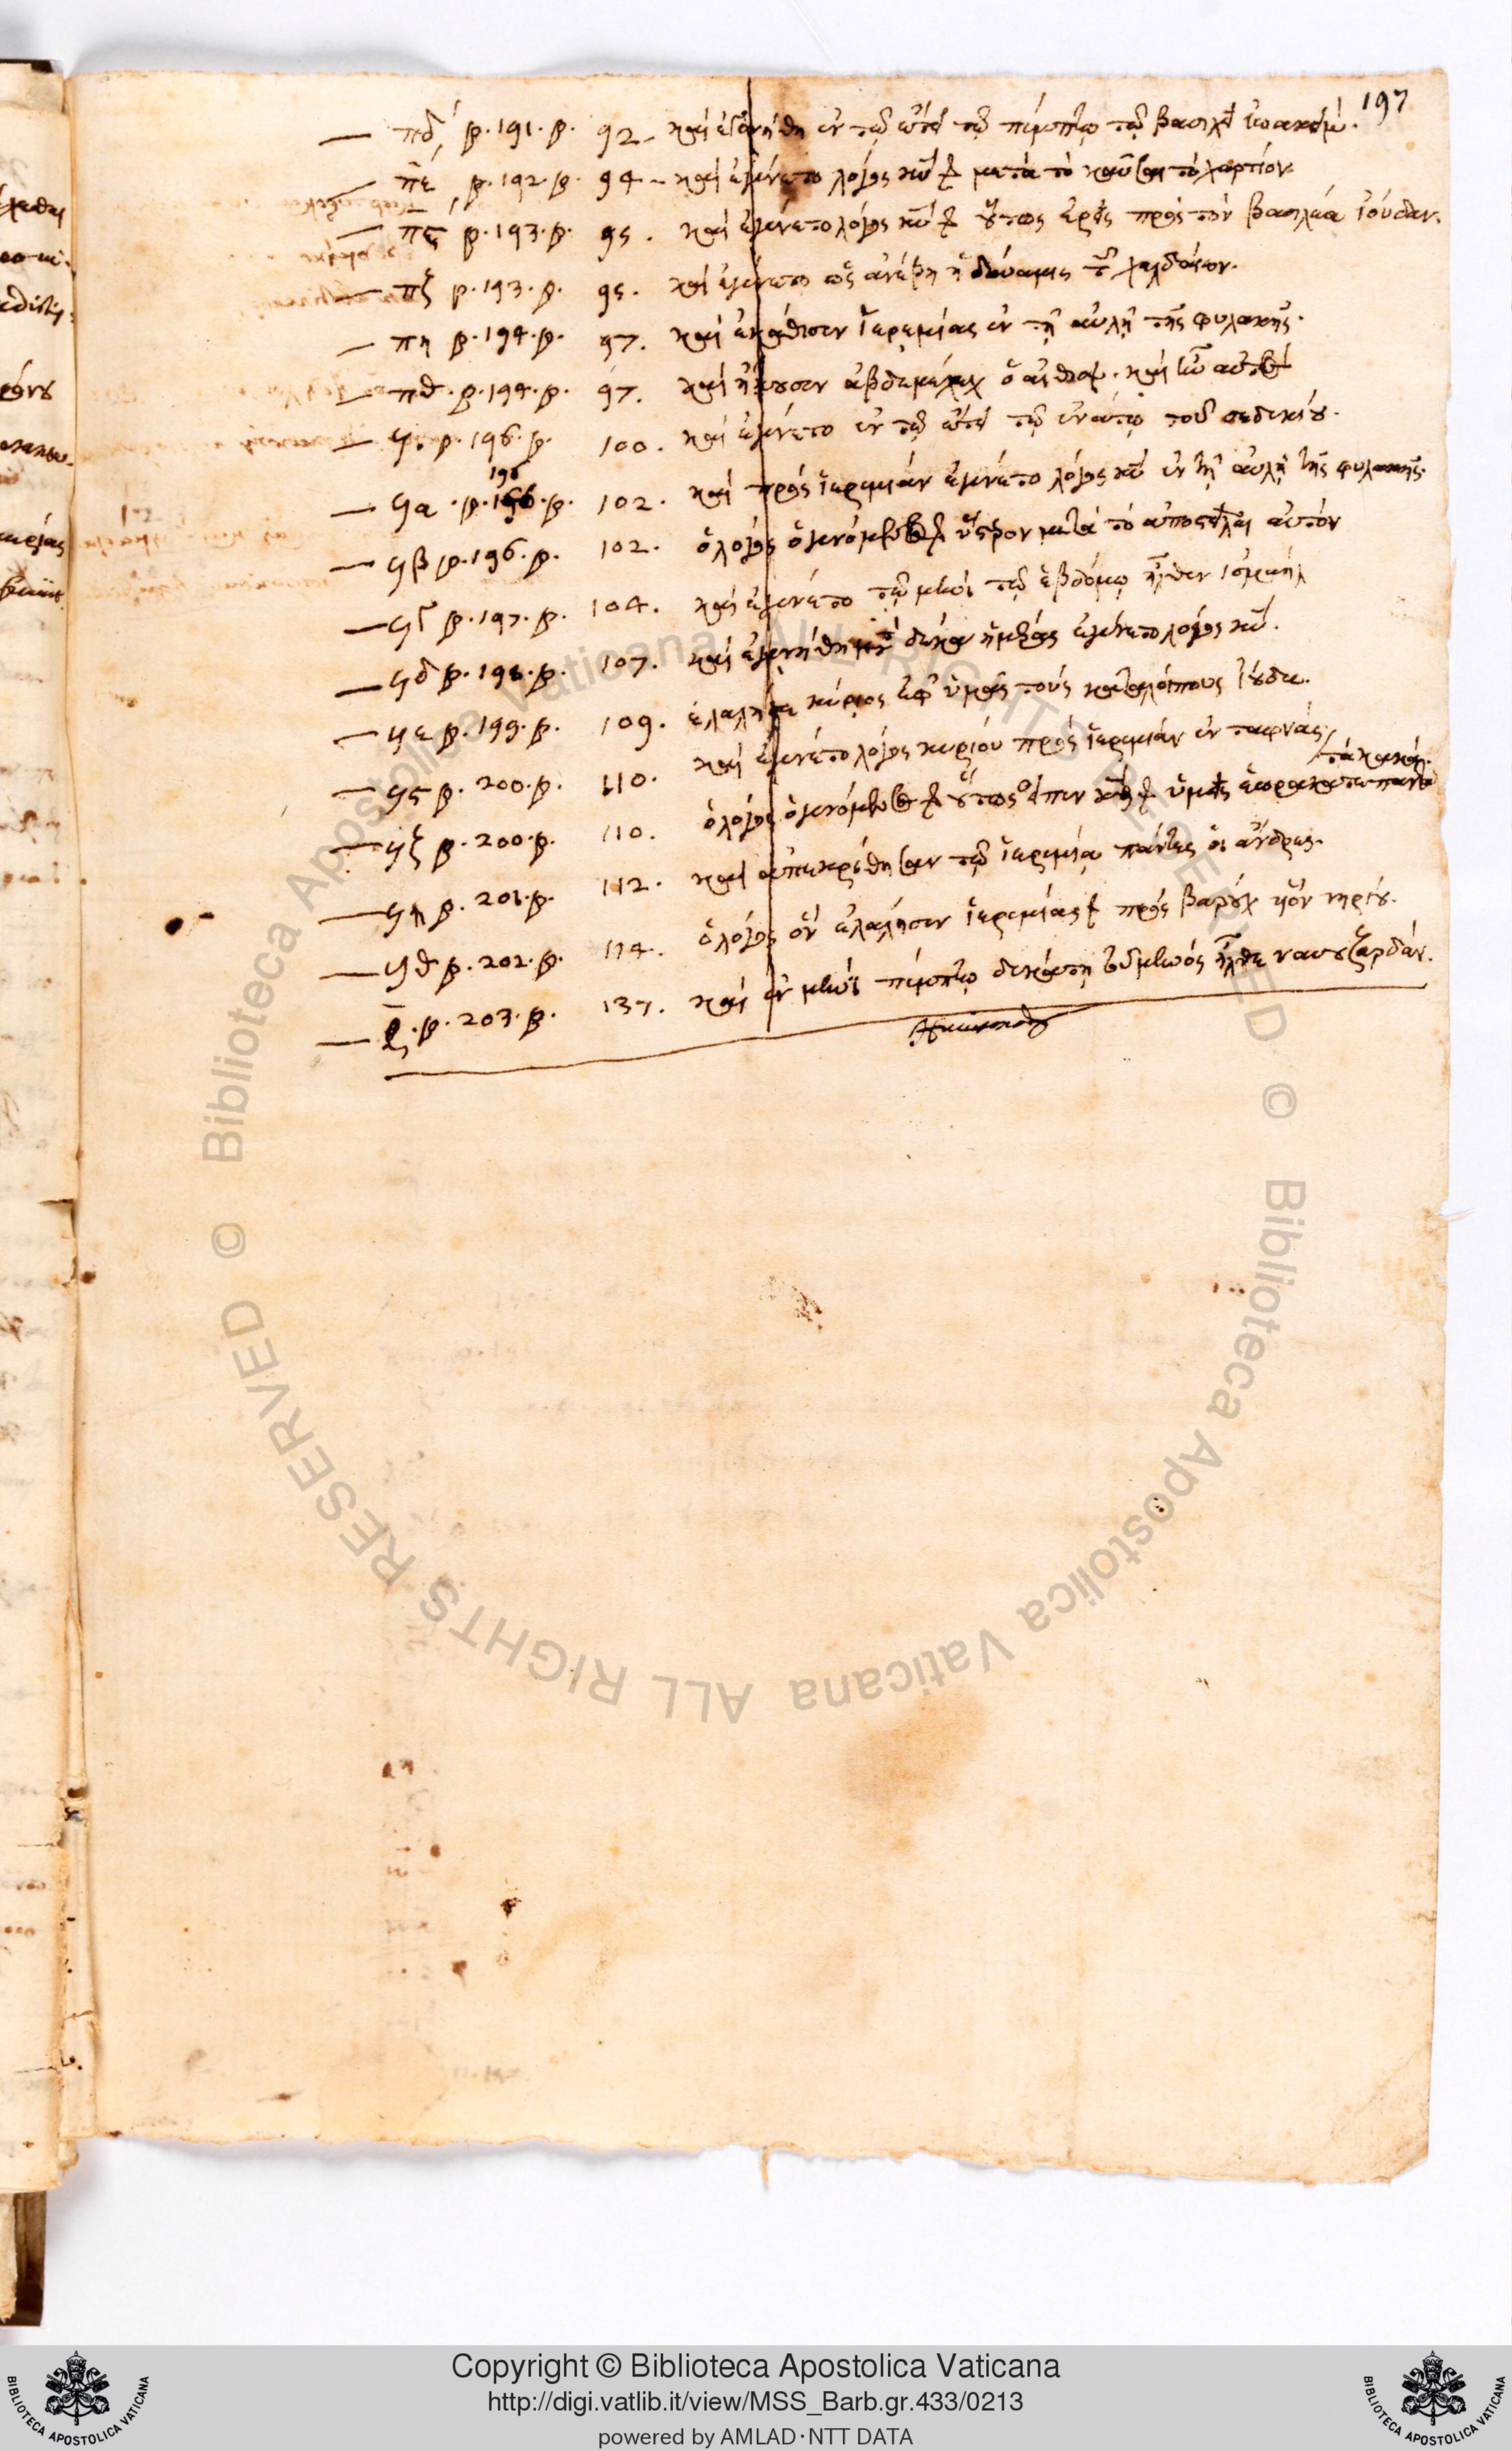 197
— πδ, p. 191. p. 92 – καὶ ἐγενήθη ἐν τῷ ἔτει τῷ πέμπτῳ τῷ βασιλεῖ ἰωακείμ.
— πε p. 192. p. 94 – καὶ ἐγένετο λόγος κυ μετὰ τὸ καῦσαι τὸ χαρτίον
— πς p. 193. p. 95. καὶ ἐγένετο λόγος κυ οὕτως ἐρεῖς πρὸς τὸν βασιλέα ἰούδαν.
— πζ p. 193. p. 95. καὶ ἐγένετο ὡς ἀνέβη ἡ δύναμις τ χαλδαίων.
— πη p. 194. p. 97. καὶ ἐκάθισεν ἱερεμίας ἐν τῇ αὐλῇ τῆς φυλακῆς.
— πθ. p. 194. p. 97. καὶ ἤκουσεν ἀβδεμέλεχ ὁ αἰθίοψ. καὶ
— ϟ. p. 196. p. 100. καὶ ἐγένετο ἐν τῷ ἔτει τῷ ἐνάτῳ τοῦ σεδεκίου.
196
— ϟα. p. p. 102. καὶ πρὸς ἱερεμίαν ἐγένετο λόγος κυ ἐν τῇ αὐλῇ τῆς φυλακῆς.
— ϟβ p. 196. p. 102. ὁ λόγος ὁ γενόμενος ὕστερον μετὰ τὸ ἀποστεῖλαι αὐτὸν
— ϟγ p. 197. p. 104. καὶ ἐγένετο τῷ μηνὶ τῷ ἑβδόμῳ ἦλθεν ἰσμαὴλ
— ϟδ p. 198. p. 107. καὶ ἐγενήθη μετὰ δέκα ἡμέρας ἐγένετο λόγος κυ.
— ϟε p. 199. p. 109. ἐλάλησε κύριος ἐφ' ὑμᾶς τοὺς καταλοίπους ἰούδα.
— ϟς p. 200. p. 110. καὶ ἐγένετο λόγος κυρίου πρὸς ἱερεμίαν ἐν ταφνάς
τὰ κακά.
— ϟζ p. 200. p. 110. ὁ λόγος ὁ γενόμενος οὕτως εἶπεν κς ὑμεῖς ἑωράκατε πάντα
— ϟη p. 201. p. 112. καὶ ἀπεκρίθησαν τῷ ἱερεμίᾳ πάντες οἱ ἄνδρες.
— ϟθ p. 202. p. 114. ὁ λόγος ὃν ἐλάλησεν ἱερεμίας πρὸς βαροὺχ υἱὸν νηρίου.
— ρ. p. 203. p. 137. καὶ ἐν μηνὶ πέμπτῳ δεκάτῃ τοῦ μηνὸς ἦλθε ναβουζαρδάν.
© Biblioteca Apostolica Vaticana ALL RIGHTS RESERVED
© Biblioteca Apostolica Vaticana ALL RIGHTS RESERVED
Copyright © Biblioteca Apostolica Vaticana
http://digi.vatlib.it/view/MSS_Barb.gr.433/0213
powered by AMLAD·NTT DATA
BIBLIOTECA APOSTOLICA VATICANA
BIBLIOTECA APOSTOLICA VATICANA